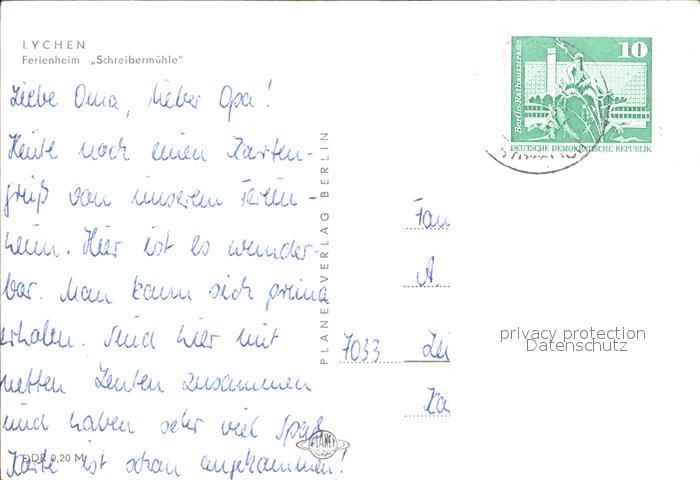 LYCHEN
Ferienheim „Schreibermühle"
Liebe Oma, lieber Opa!
Heute noch einen Karten-
gruß von unserem Ferien-
heim. Hier ist es wunder-
bar. Man kann sich prima
erholen. Sind hier mit
netten Leuten zusammen
und haben sehr viel Spaß
Karte ist schon angekommen!
DDR 0,20 M
PLANET-VERLAG BERLIN
PLANET
10
Berlin-Rathausstraße
DEUTSCHE DEMOKRATISCHE REPUBLIK
Fam
A.
7033 Lei
Ka
privacy protection
Datenschutz